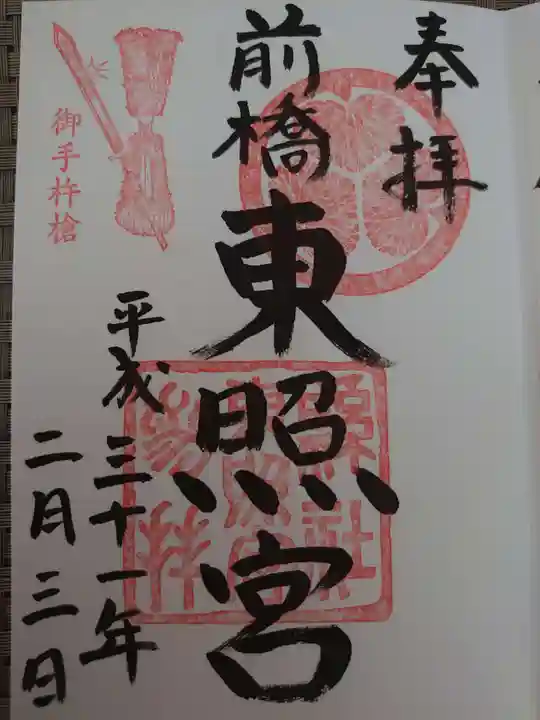 奉拝
前橋東照宮
平成三十一年
二月三日
御手杵槍